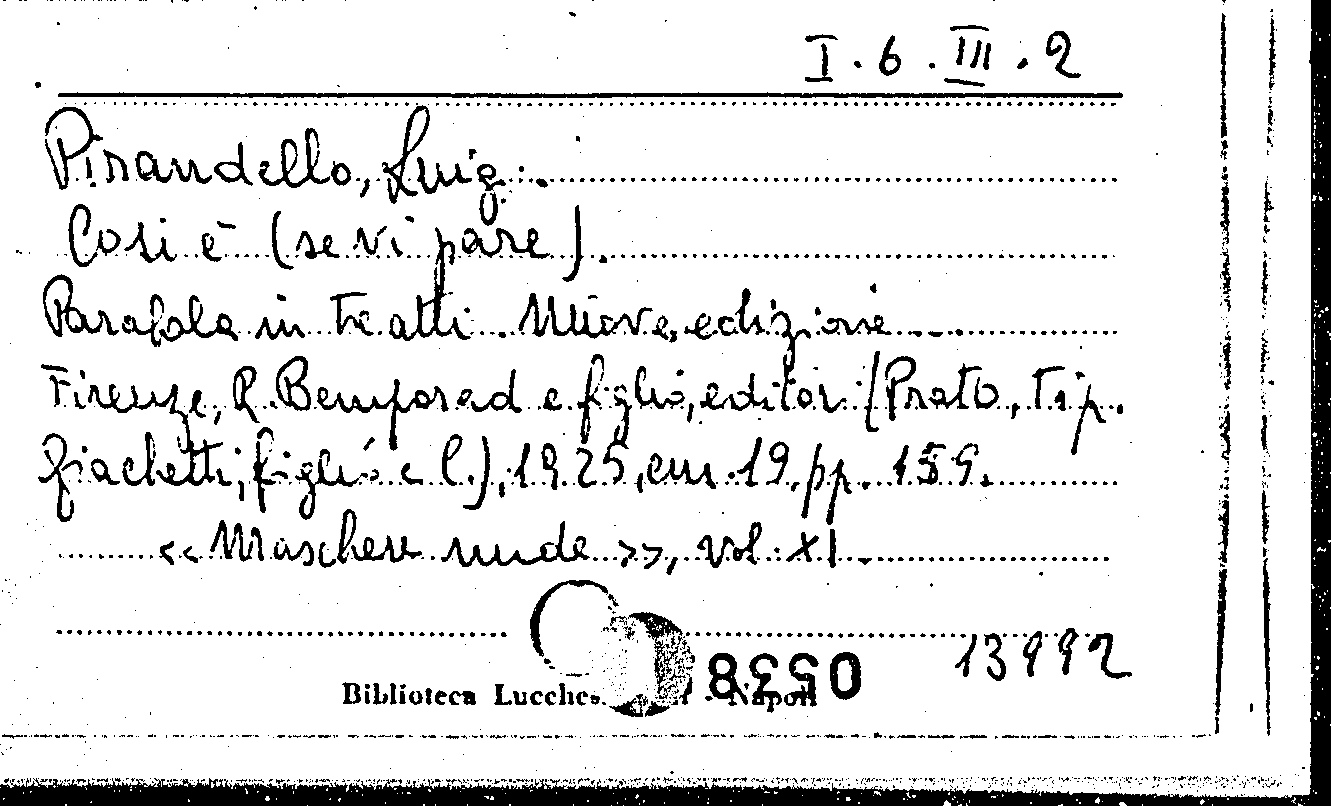 I. 6. III. 2
Pirandello, Luigi.
Così è (se vi pare).
Parabola in tre atti. Nuova edizione
Firenze, R. Bemporad e figlio, editori (Prato, Tip.
Giachetti, figlio e C.), 1925, cm. 19, pp. 159.
<< Maschere nude >>, vol. XI.
13992
Biblioteca - Napoli